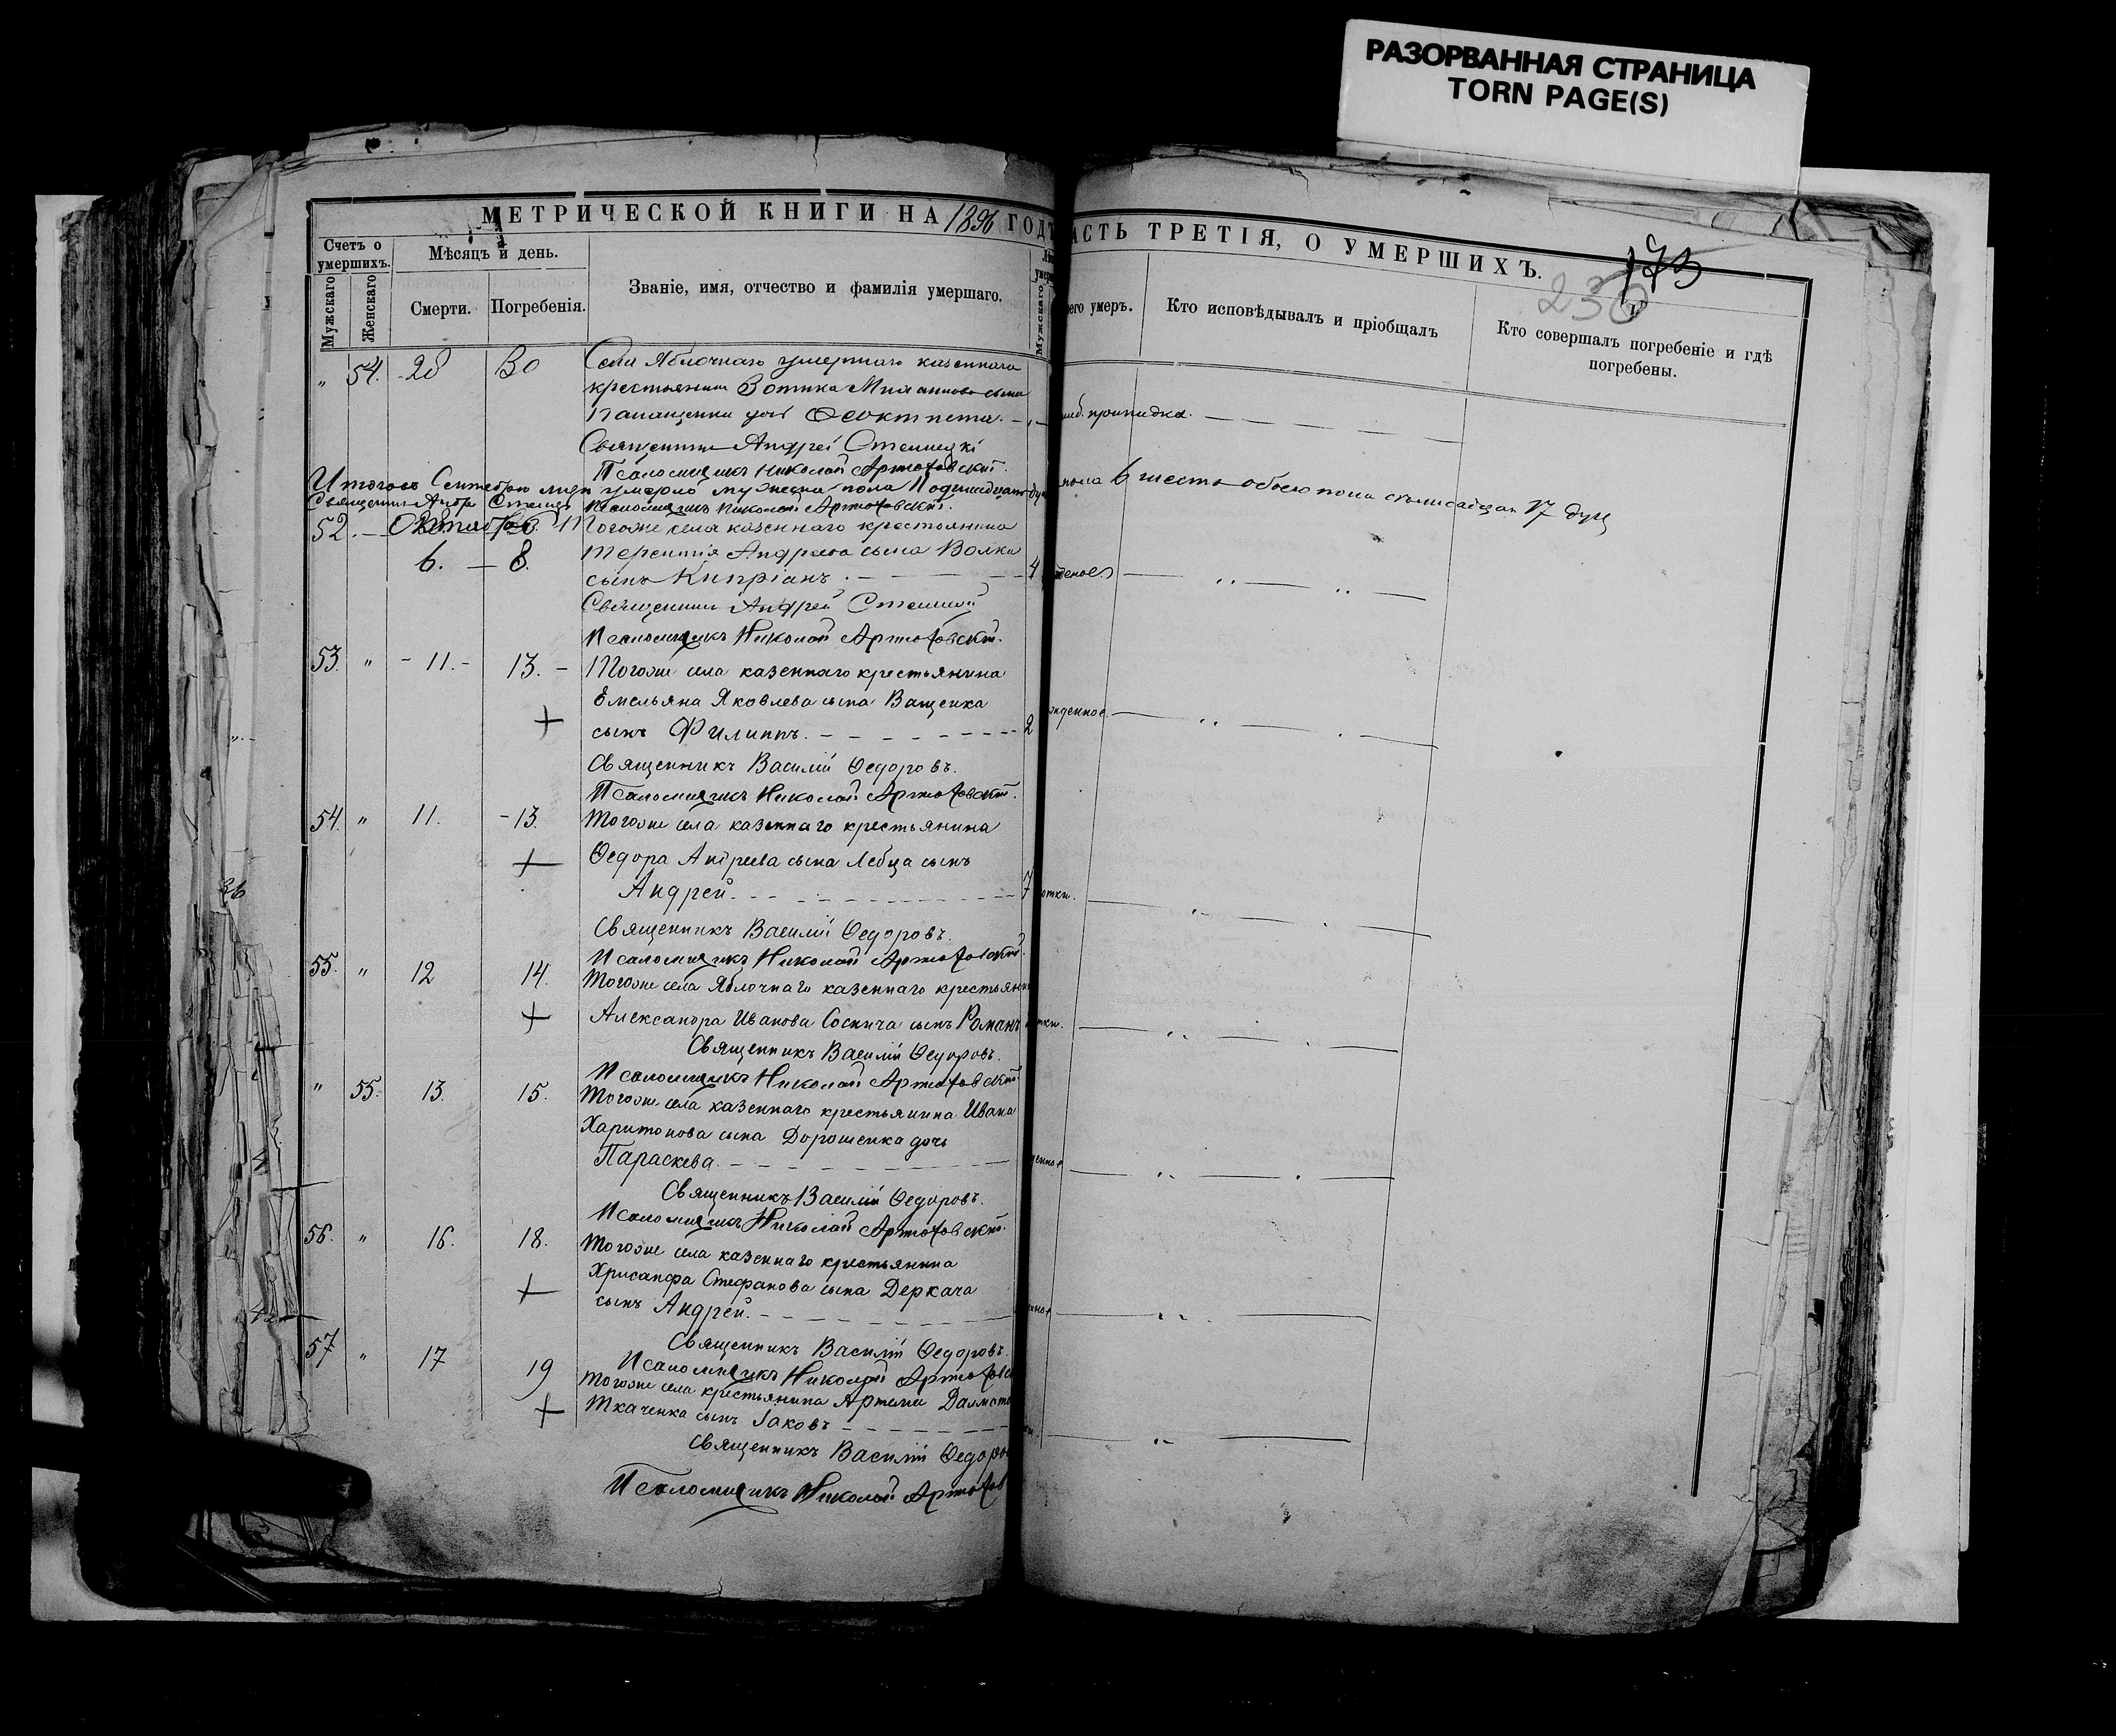 РАЗОРВАННАЯ СТРАНИЦА
TORN PAGE(S)
МЕТРИЧЕСКОЙ КНИГИ НА 1896 ГОДЪ
АСТЬ ТРЕТІЯ, О УМЕРШИХЪ.
173
230
Счетъ о умершихъ.
Мѣсяцъ и день.
Мужскаго
Женскаго
Смерти.
Погребенія.
Званіе, имя, отчество и фамилія умершаго.
Мужскаго
его умеръ.
Кто исповѣдывалъ и пріобщалъ
Кто совершалъ погребеніе и гдѣ
погребены.
" 54. 28 30 Села Яблочнаго умершаго казеннаго
крестьянина Зотика сына
дочь Феоктиста.
Священникъ Андрей
Псаломщикъ Николай Артюховскій.
Итого въ Сентябрѣ умерло мужеска пола 11 одинадцать пола 6 шесть обоего пола 17 душ
Священникъ Андр. Псаломщикъ Николай Артюховскій.
52. Октябрь Тогоже села казеннаго крестьянина
6. 8. Терентія Андреева сына Волка
сынъ Кипріанъ. 4
Священникъ Андрей
Псаломщикъ Николай Артюховскій.
53. " 11. 13. Тогоже села казеннаго крестьянина
Емельяна Яковлева сына Ващенка
сынъ Филиппъ. 2 жденное.
Священникъ Василій Ѳедоровъ.
Псаломщикъ Николай Артюховскій.
54. " 11. 13. Тогоже села казеннаго крестьянина
Ѳедора Андреева сына Лебца сынъ
Андрей. 7 отки.
Священникъ Василій Ѳедоровъ.
Псаломщикъ Николай Артюховскій.
55. " 12 14. Тогоже села Яблочнаго казеннаго крестьяни
Александра Иванова Соснича сынъ Романъ
Священникъ Василій Ѳедоровъ.
Псаломщикъ Николай Артюховскій.
" 55. 13. 15. Тогоже села казеннаго крестьянина Ивана
Харитонова сына Дорошенка дочь
Параскева.
Священникъ Василій Ѳедоровъ.
Псаломщикъ Николай Артюховскій.
56. " 16. 18. Тогоже села казеннаго крестьянина
Хрисанфа Стефанова сына Деркача
сынъ Андрей.
Священникъ Василій Ѳедоровъ.
Псаломщикъ Николай Артюховс
57 " 17 19 Тогоже села крестьянина Артема Далмато
Ткаченка сынъ Іаковъ
Священникъ Василій Ѳедоро
Псаломщикъ Николай Артюхов